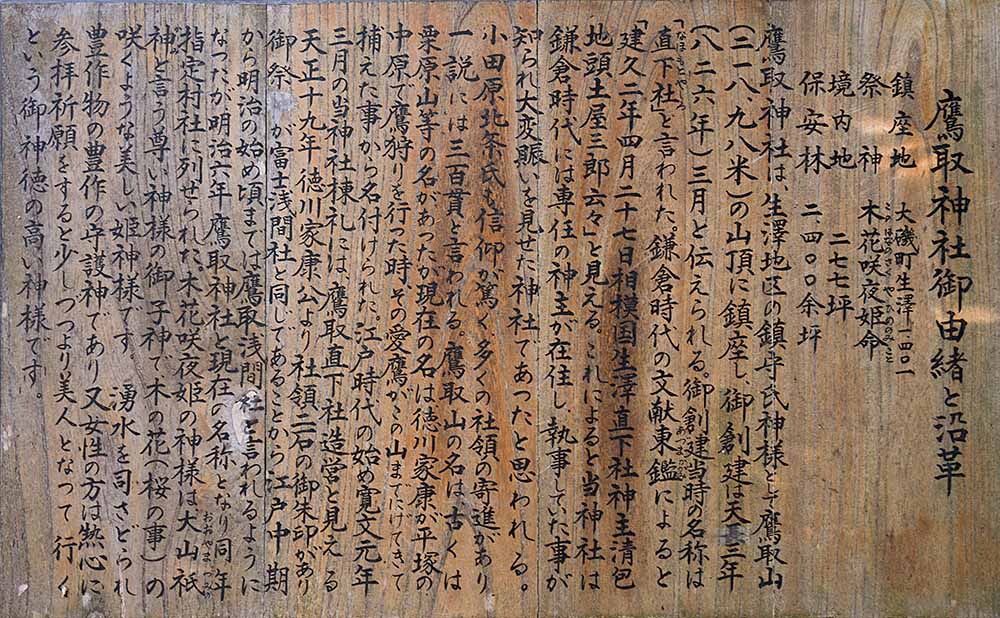 鷹取神社御由緒と沿革
鎮座地 大磯町生澤一四〇一
祭神 木花咲夜姫命
このはなさくやひめのみこと
境内地 二七七坪
保安林 二四〇〇余坪
鷹取神社は、生澤地区の鎮守氏神様として鷹取山
(二一八、九八米)の山頂に鎮座し、御創建は天長三年
(八二六年)三月と伝えられる。御創建当時の名称は
「直下社と言われた。鎌倉時代の文献東鑑によると
建久二年四月二十七日相模国生澤直下社神主清包
地頭土屋三郎云々」と見える、これによると当神社は
鎌倉時代には専任の神主が在住し、執事していた事が
知られ大変賑いを見せた神社であったと思われる。
小田原北条氏も信仰が篤く多くの社領の寄進があり
一説には三百貫と言われる。鷹取山の名は、古くは
栗原山等の名があったが現在の名は徳川家康が平塚の
中原で鷹狩りを行った時、その愛鷹がこの山までにげてきて
捕えた事から名付けられた。江戸時代の始め寛文元年
三月の当神社棟札には、鷹取直下社造営と見える
天正十九年徳川家康公より社領二石の御朱印があり
御祭が富士浅間社と同じであることから江戸中期
から明治の始め頃までは鷹取浅間社と言われるように
なったが明治六年鷹取神社と現在の名称となり同年
指定村社に列せられた。木花咲夜姫の神様は大山祇
おおやまつみ
神と言う尊い神様の御子神で木の花(桜の事)の
咲くような美しい姫神様です。 湧水を司さどられ
豊作物の豊作の守護神であり又女性の方は熱心に
参拝祈願をすると少しづつより美人となって行く
という御神徳の高い神様です。